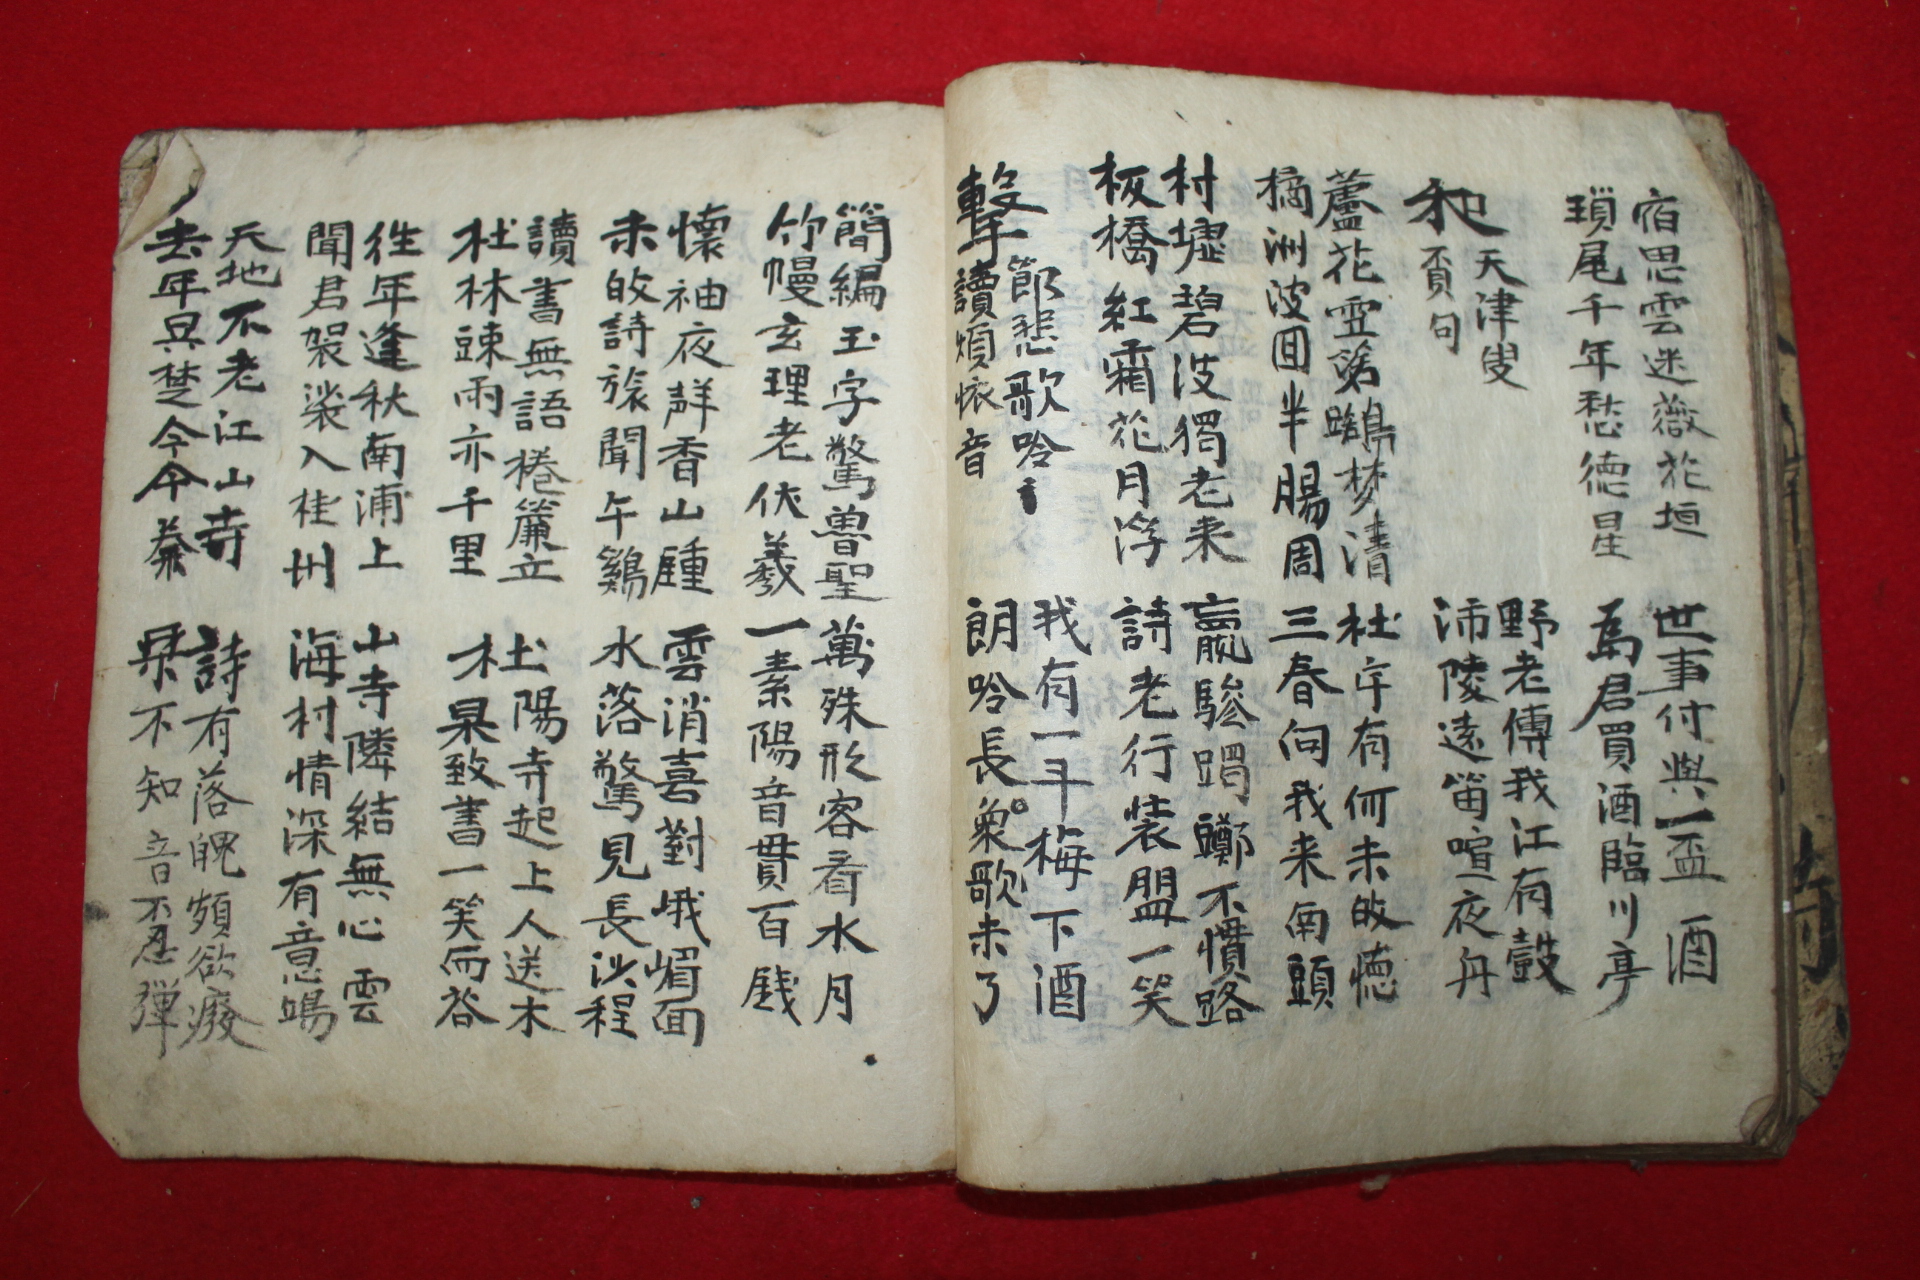 宿思雲迷薇花垣 世事付與一盃酒
瑣尾千年愁德星 為君買酒臨川亭
和 天津叟 野老傳我江有鼓
句 沛陵遠笛喧夜舟
蘆花雪落鷗梦清 杜宇有何未皈德
橘洲波回半腸周 三春向我来南頭
村墟碧波獨老来 羸驂躅躑不慣路
板橋紅霜花月浮 詩老行装盟一笑
擊節悲歌吟 我有一斗梅下酒
讀煩依音 朗吟長歌未了
簡編玉字驚魯聖 萬殊形容看水月
竹幔玄理老伏羲 一素陽音貫百銭
懷袖夜辞香山腫 雲消喜對峨嵋面
未皈詩旅聞午鷄 水落驚見長沙程
讀書無語捲簾立 杜陽寺起上人送木
杜林疎雨亦千里 杲致書一笑而答
徃年逢秋南浦上 山寺隣結無心雲
聞君袈裟入桂州 海村情深有意鴎
天地不老江山寺 詩有落魄頻欲癈
去年吴楚今今秦 琹不知音不忍彈